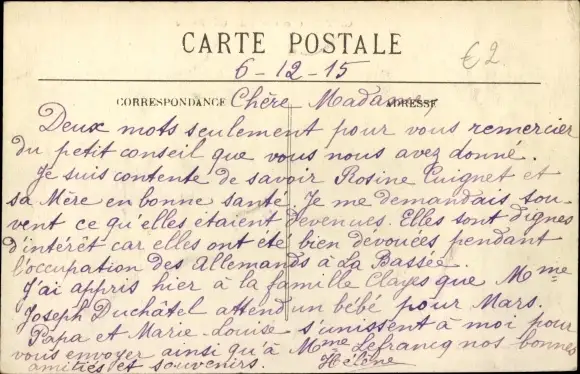 CARTE POSTALE
€2
6-12-15
CORRESPONDANCE Chère Madame, ADRESSE
Deux mots seulement pour vous remercier
du petit conseil que vous nous avez donné.
Je suis contente de savoir Rosine Cuignet et
sa Mère en bonne santé. Je me demandais sou-
vent ce qu'elles étaient devenues. Elles sont dignes
d'intérêt car elles ont été bien dévouées pendant
l'occupation des Allemands à La Bassée.
J'ai appris hier à la famille Clayes que Mme
Joseph Duchâtel attend un bébé pour Mars.
Papa et Marie-Louise s'unissent à moi pour
vous envoyer ainsi qu'à Mme Lefrancq nos bonnes
amitiés et souvenirs. Hélène